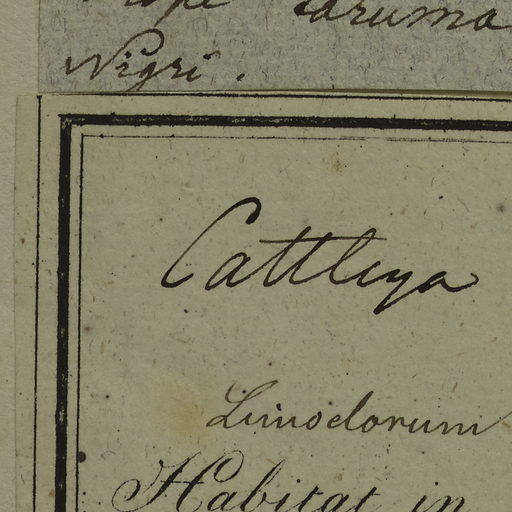 Taruma
Nigri.
Cattleya
Limodorum
Habitat in